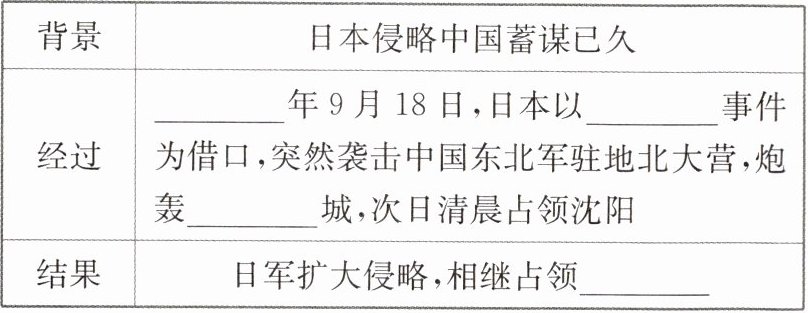 背景
日本侵略中国蓄谋已久
经过
________年9月18日,日本以________事件
为借口,突然袭击中国东北军驻地北大营,炮
轰________城,次日清晨占领沈阳
结果
日军扩大侵略,相继占领________